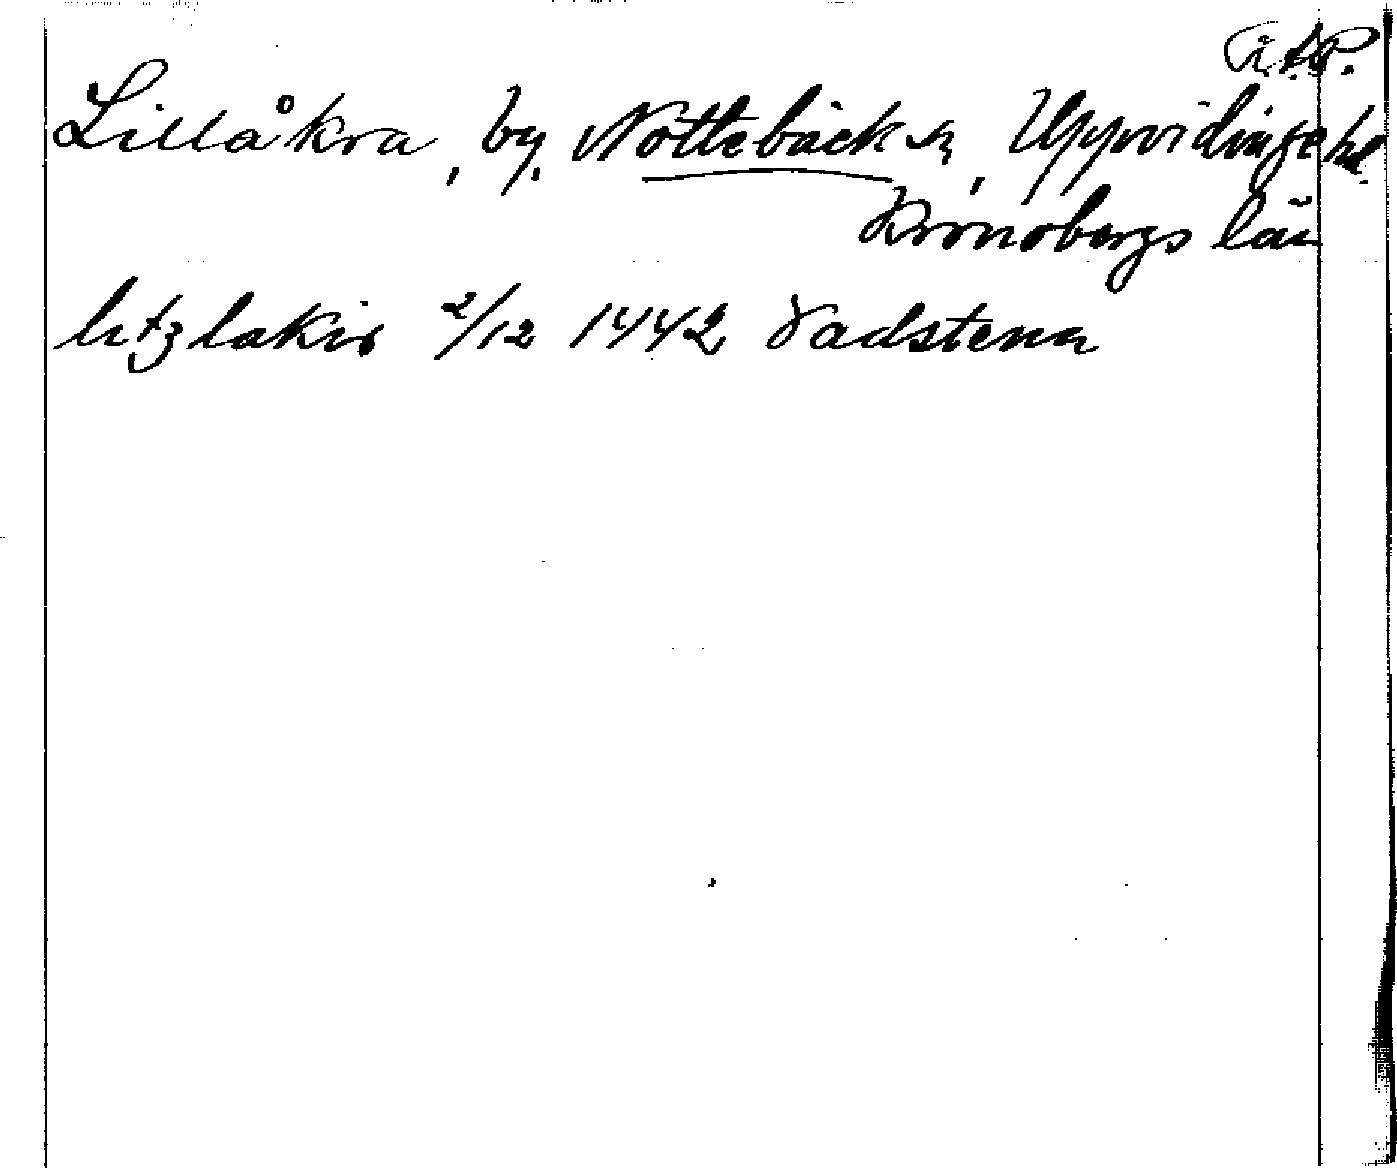 Lillåkra, by, Nottebäck sn, Uppvidinge hd.
Kronobergs län
litzlakir 2/12 1442 Vadstena